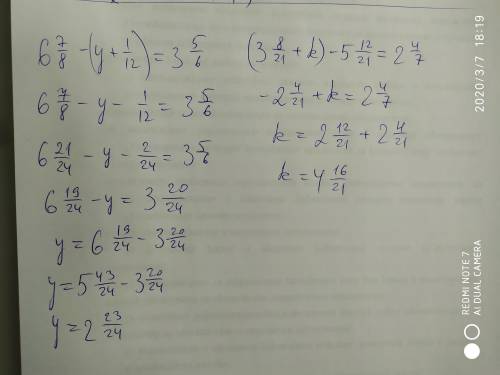 6 7/8 - (y + 1/12) = 3 5/6
6 7/8 - y - 1/12 = 3 5/6
6 21/24 - y - 2/24 = 3 5/6
6 19/24 - y = 3 20/24
y = 6 19/24 - 3 20/24
y = 5 43/24 - 3 20/24
y = 2 23/24
(3 8/21 + k) - 5 12/21 = 2 4/7
- 2 4/21 + k = 2 4/7
k = 2 12/21 + 2 4/21
k = 4 16/21
2020/3/7 18:19
REDMI NOTE 7
AI DUAL CAMERA